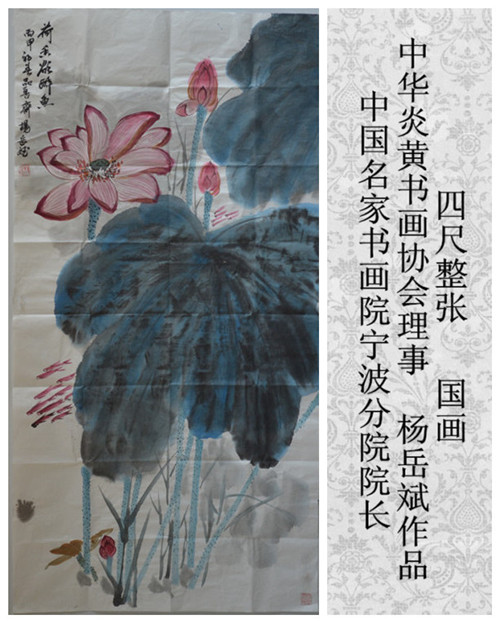 四尺整张 国画
中华炎黄书画协会理事 杨岳斌作品
中国名家书画院宁波分院院长
荷香欲醉魚
丙申初 楊岳斌